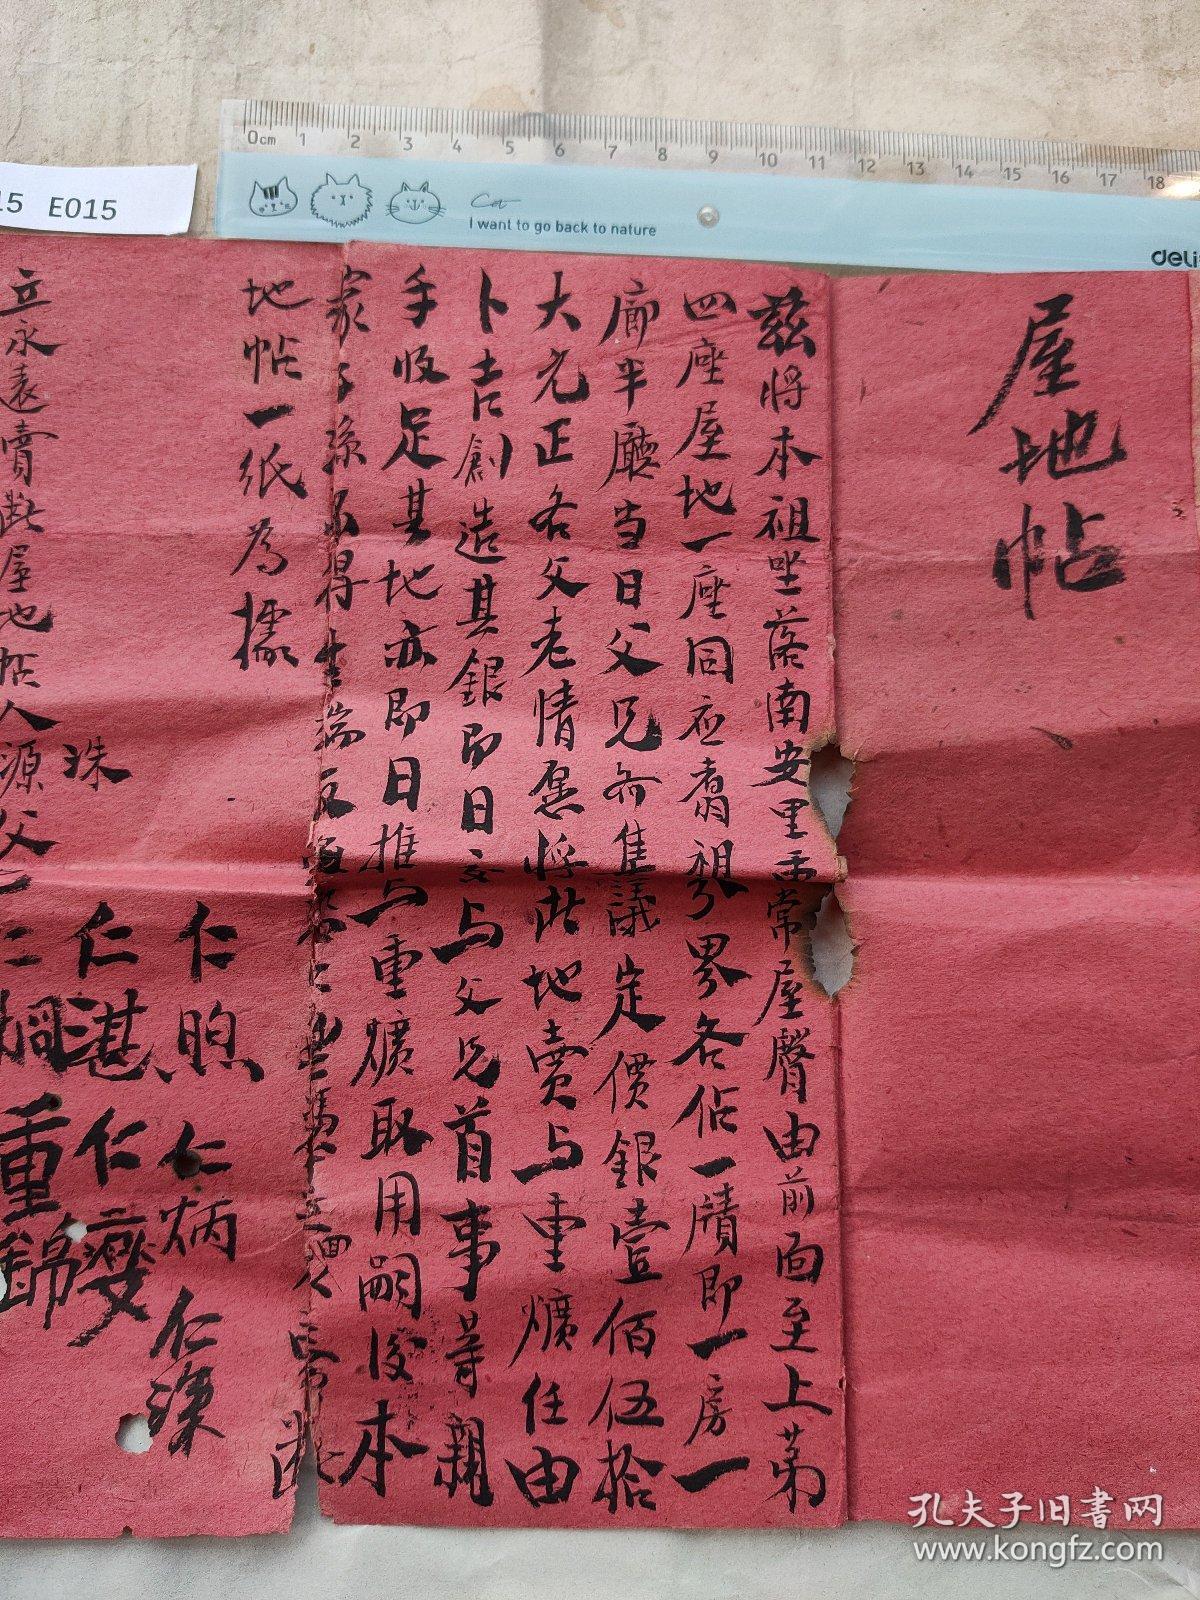 0cm 1 2 3 4 5 6 7 8 9 10 11 12 13 14 15 16 17 18
15 E015
Cat
I want to go back to nature
deli
屋地帖
茲將本祖坐落南安里 常屋 由前面至上第
四座屋地一座同在 祖 界各佔一 即一房一
廊半廳当日父兄 集議定價銀壹佰伍拾
大元正各父老情愿將此地賣与重爌任由
卜吉創造其銀即日交与父兄首事等親
手收足其地亦即日推与重爌取用嗣後本
家子孫不得生端反 立 此
地帖一紙為據
仁煦 仁炳 仁深
洙 仁湛 仁
立永遠賣斷屋地帖人源父 仁炯 重錦
孔夫子旧书网
www.kongfz.com